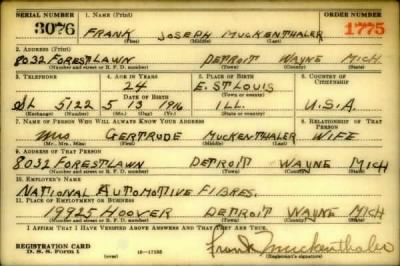 SERIAL NUMBER 1. NAME (Print) ORDER NUMBER
3076 FRANK JOSEPH MUCKENTHALER 1775
(First) (Middle) (Last)
2. ADDRESS (Print)
8032 FORESTLAWN DETROIT WAYNE MICH
(Number and street or R. F. D. number) (Town) (County) (State)
3. TELEPHONE 4. AGE IN YEARS 5. PLACE OF BIRTH 6. COUNTRY OF CITIZENSHIP
24 E. ST LOUIS
DATE OF BIRTH (Town or county)
5122 5 13 1916 ILL. U.S.A.
(Exchange) (Number) (Mo.) (Day) (Yr.) (State or country)
7. NAME OF PERSON WHO WILL ALWAYS KNOW YOUR ADDRESS 8. RELATIONSHIP OF THAT PERSON
Mrs GERTRUDE MUCKENTHALER WIFE
(Mr., Mrs., Miss) (First) (Middle) (Last)
9. ADDRESS OF THAT PERSON
8032 FORESTLAWN DETROIT WAYNE MICH
(Number and street or R. F. D. number) (Town) (County) (State)
10. EMPLOYER'S NAME
NATIONAL AUTOMOTIVE FIBRES.
11. PLACE OF EMPLOYMENT OR BUSINESS
9925 HOOVER DETROIT WAYNE MICH
(Number and street or R. F. D. number) (Town) (County) (State)
I AFFIRM THAT I HAVE VERIFIED ABOVE ANSWERS AND THAT THEY ARE TRUE.
REGISTRATION CARD
D. S. S. Form 1 (over) Frank Muckenthaler
(Registrant's signature)